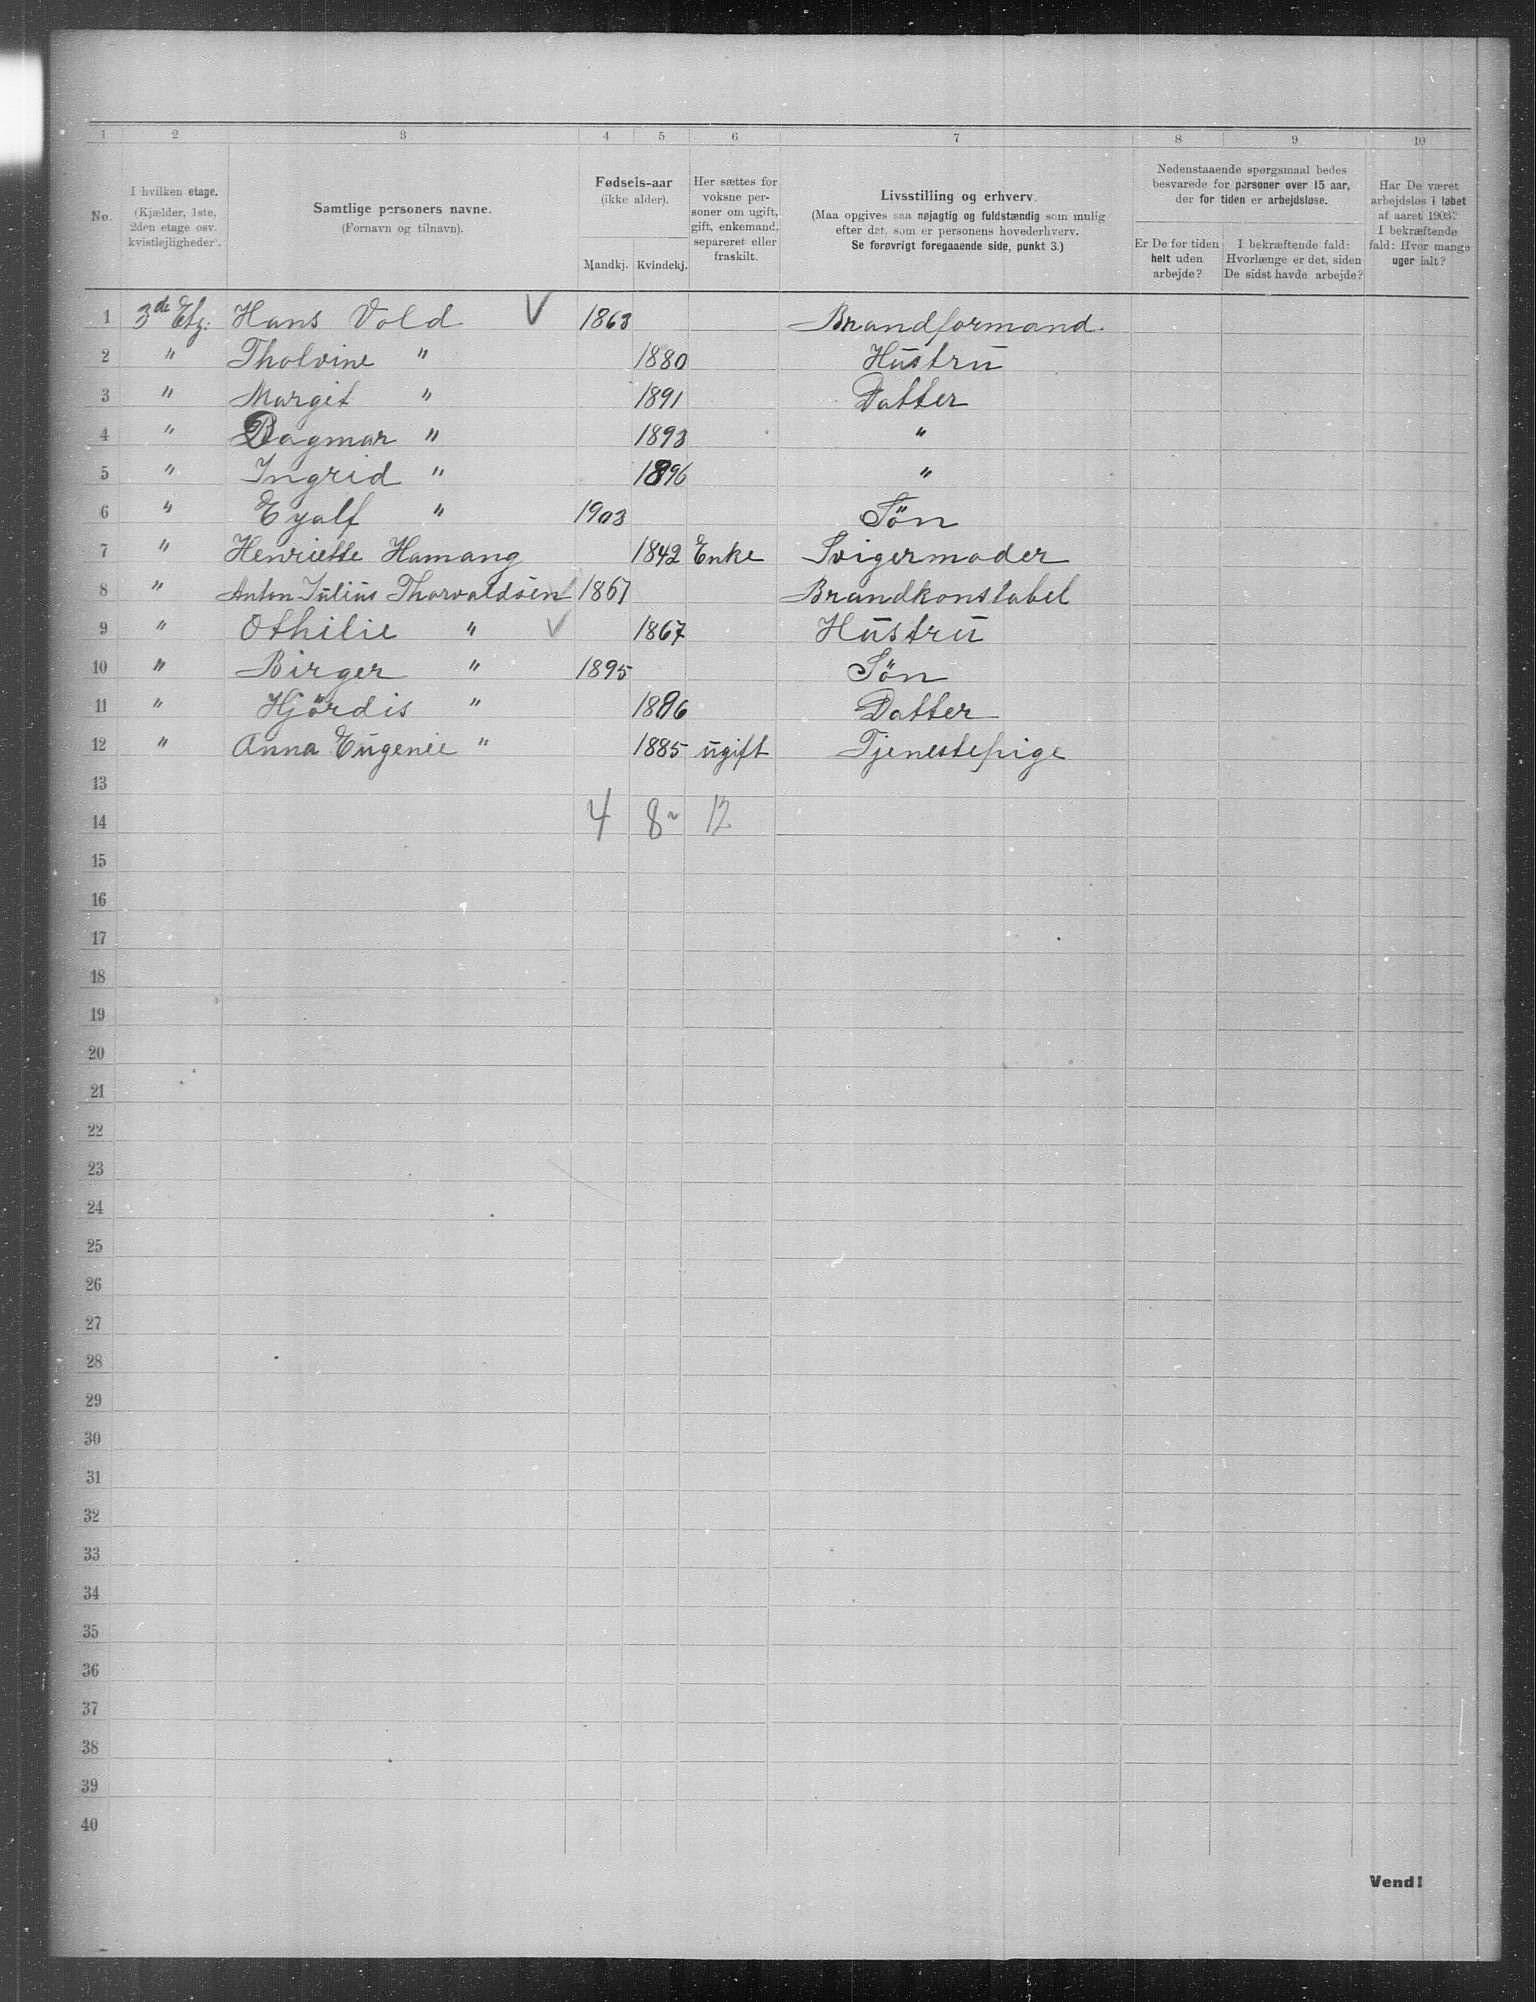 1 2 3 4 5 6 7 8 9 10
No.
I hvilken etage.
(Kjælder, 1ste,
2den etage osv.
kvistlejligheder).
Samtlige personers navne.
(Fornavn og tilnavn).
Fødsels-aar
(ikke alder).
Mandkj. Kvindekj.
Her sættes for
voksne per-
soner om ugift,
gift, enkemand,
separeret eller
fraskilt.
Livsstilling og erhverv.
(Maa opgives saa nøjagtig og fuldstændig som mulig
efter det, som er personens hovederhverv.
Se forøvrigt foregaaende side, punkt 3.)
Nedenstaaende spørgsmaal bedes
besvarede for personer over 15 aar,
der for tiden er arbejdsløse.
Er De for tiden
helt uden
arbejde?
I bekræftende fald:
Hvorlænge er det, siden
De sidst havde arbejde?
Har De været
arbejdsløs i løbet
af aaret 1903?
I bekræftende
fald: Hvor mange
uger ialt?
1 3de Etg. Hans Vold V 1863 Brandformand.
2 " Tholvine " 1880 Hustru
3 " Margit " 1891 Datter
4 " Dagmar " 1893 "
5 " Ingrid " 1896 "
6 " Eyalf " 1903 Søn
7 " Henriette Hamang 1842 Enke Svigermoder
8 " Anton Julius Thorvaldsen V 1867 Brandkonstabel
9 " Othilie " V 1867 Hustru
10 " Birger " 1895 Søn
11 " Hjördis " 1896 Datter
12 " Anna Eugenie " 1885 ugift Tjenestepige
13
14 4 8 12
15
16
17
18
19
20
21
22
23
24
25
26
27
28
29
30
31
32
33
34
35
36
37
38
39
40
Vend!